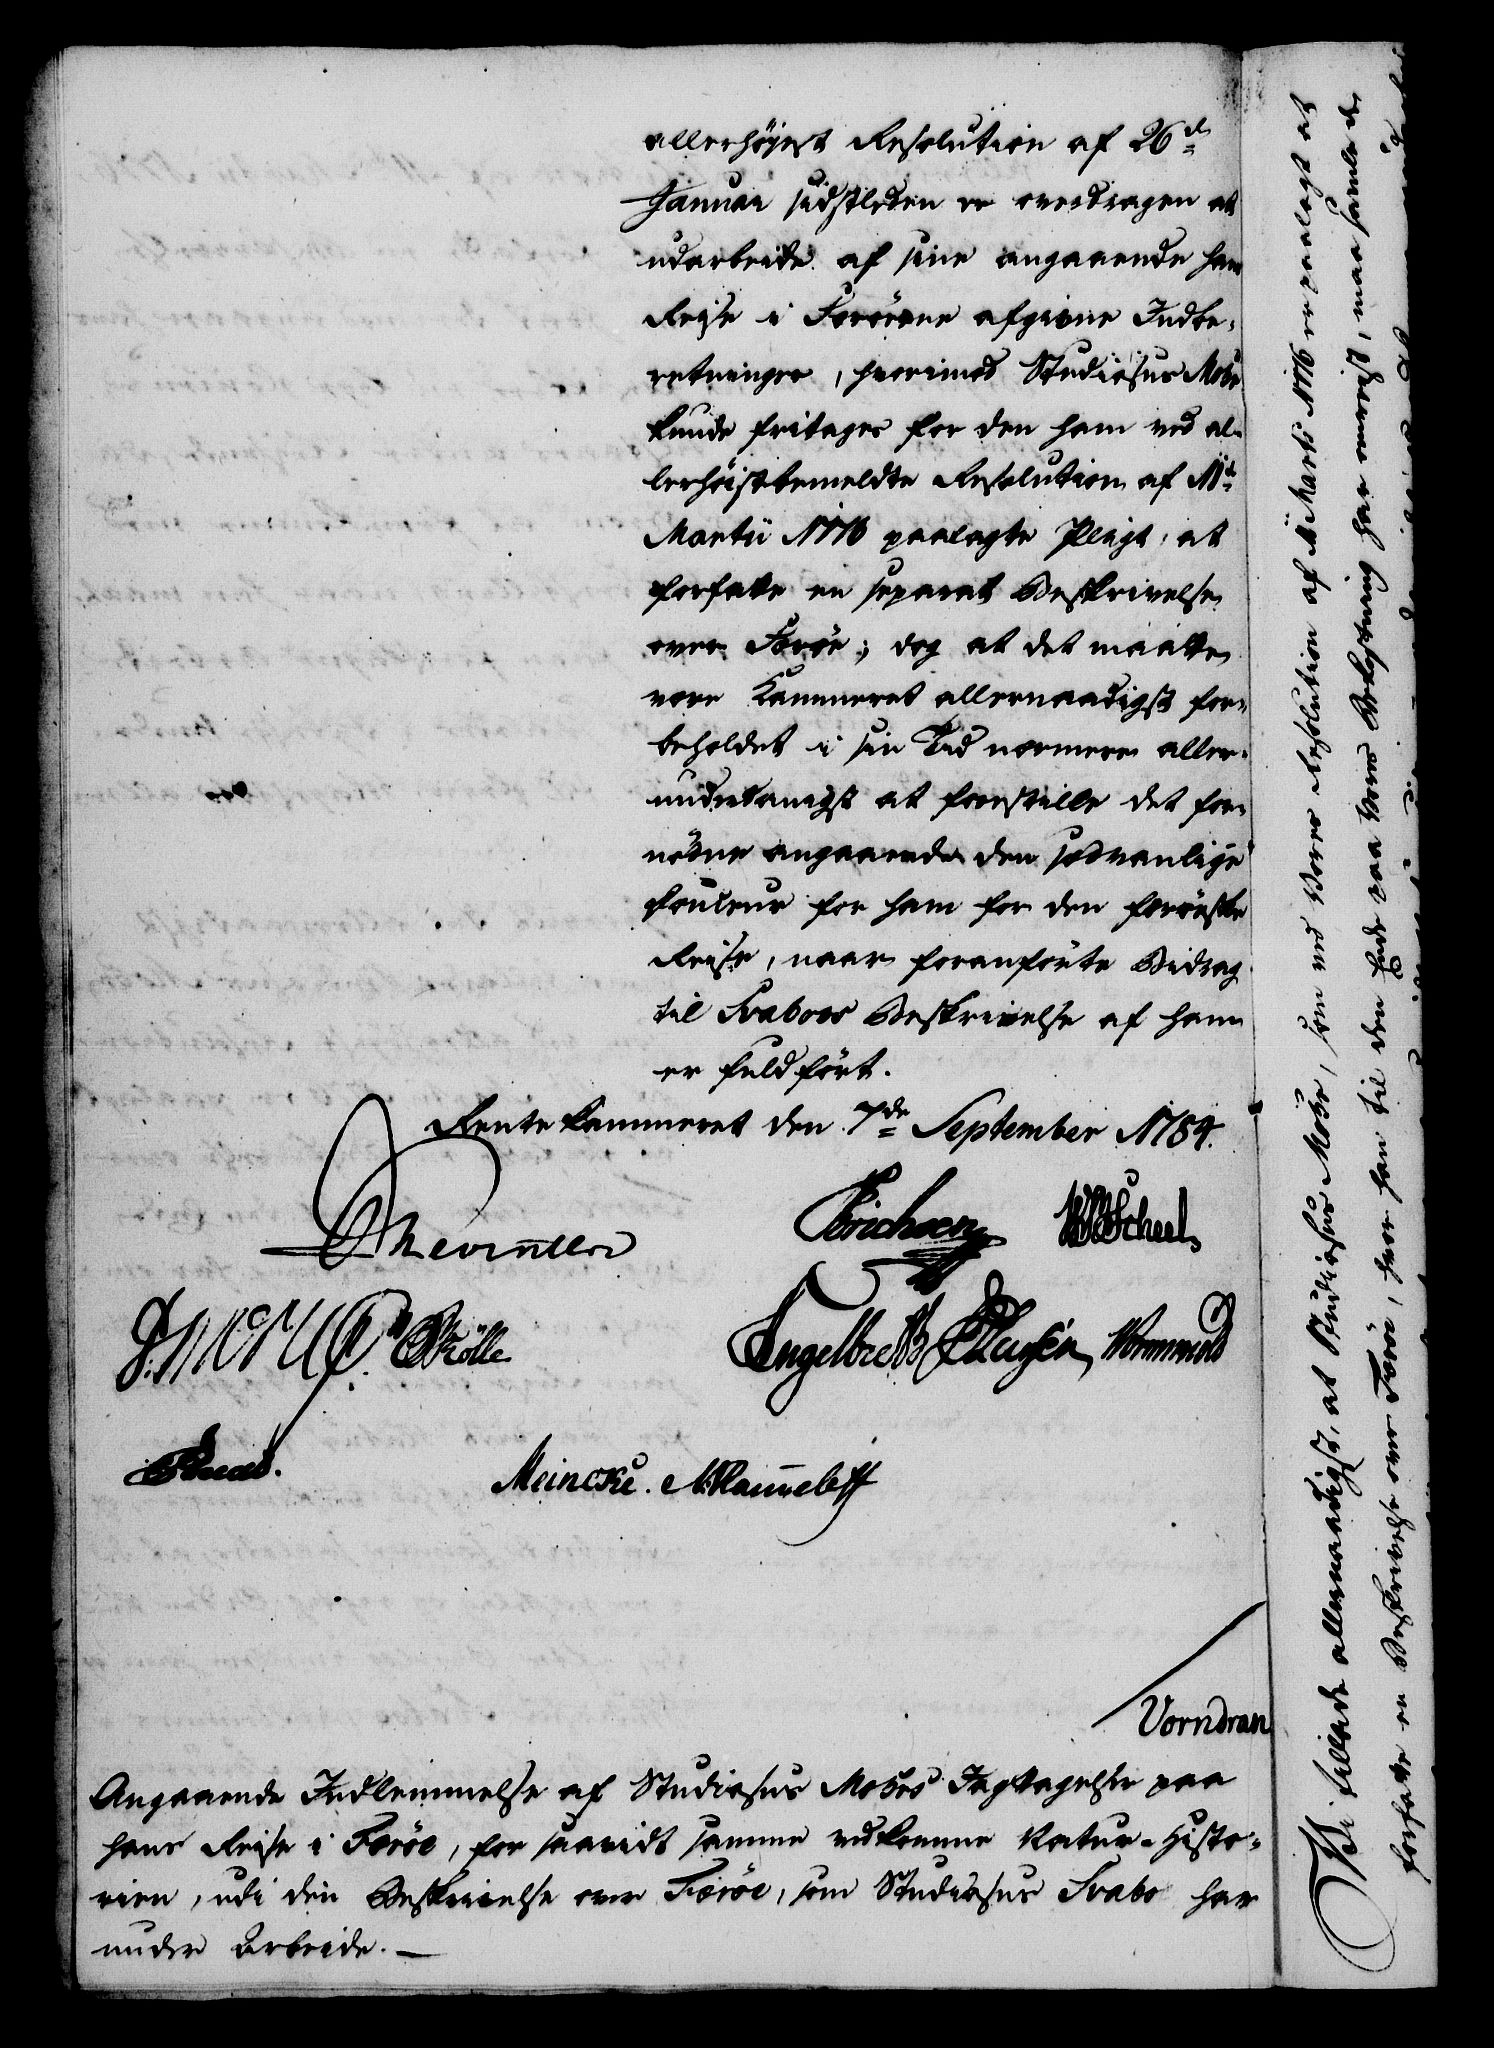 allerhöjest Resolution af 26de
Januar sidstleden er overdragen at
udarbeide af sine angaaende hans
Reise i Færöerne afgivne Indbe-
retninger, hvorimod Studiosus Mohr
kunde fritages for den ham ved al-
lerhöistbemeldte Resolution af 11te
Martii 1776 paalagte Pligt, at
forfatte en separat Beskrivelse
over Færöe; dog at det maatte
være Kammeret allernaadigst for-
beholdet i sin Tid nærmere aller-
underdanigst at forestille det for-
nödne angaaende den sædvanlige
Douceur for ham for den færöeske
Reise, naar foranförte Bidrag
til Svaboes Beskrivelse af ham
er fuldfört.
Rentekammeret den 7de September 1784.
Reventlow Erichsen Scheel
Engelbreth Wormwold
Meincke. Rammeleff
Vorndran
Angaaende Indlemmelse af Studiosus Mohrs Iagttagelser paa
hans Reise i Færöe, for saavidt samme vedkomme Natur-Histo-
rien, udi den Beskrivelse over Færöe, som Studiosus Svabo har
under Arbeide.
Vi tillade allernaadigst, at Studiosus Mohr, som ved Vores Resolution af 11 Marts 1776 er paalagt at
forfatte en Beskrivelse over Færöe, hvor han til den Ende paa Vores Bekostning har været, maa samle de